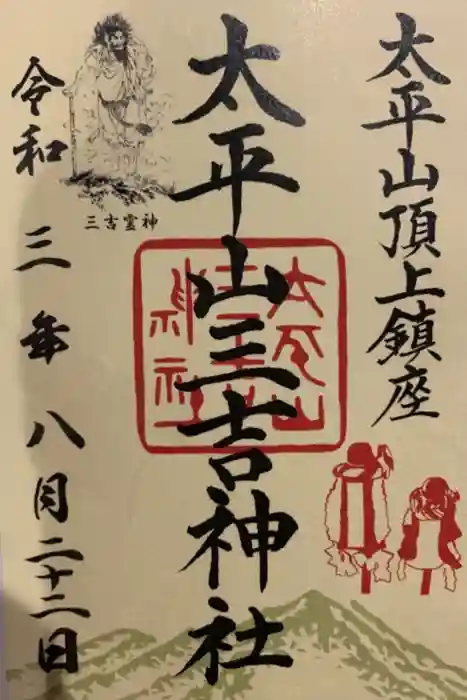 太平山頂上鎮座
太平山三吉神社
三吉霊神
令和三年八月二十二日